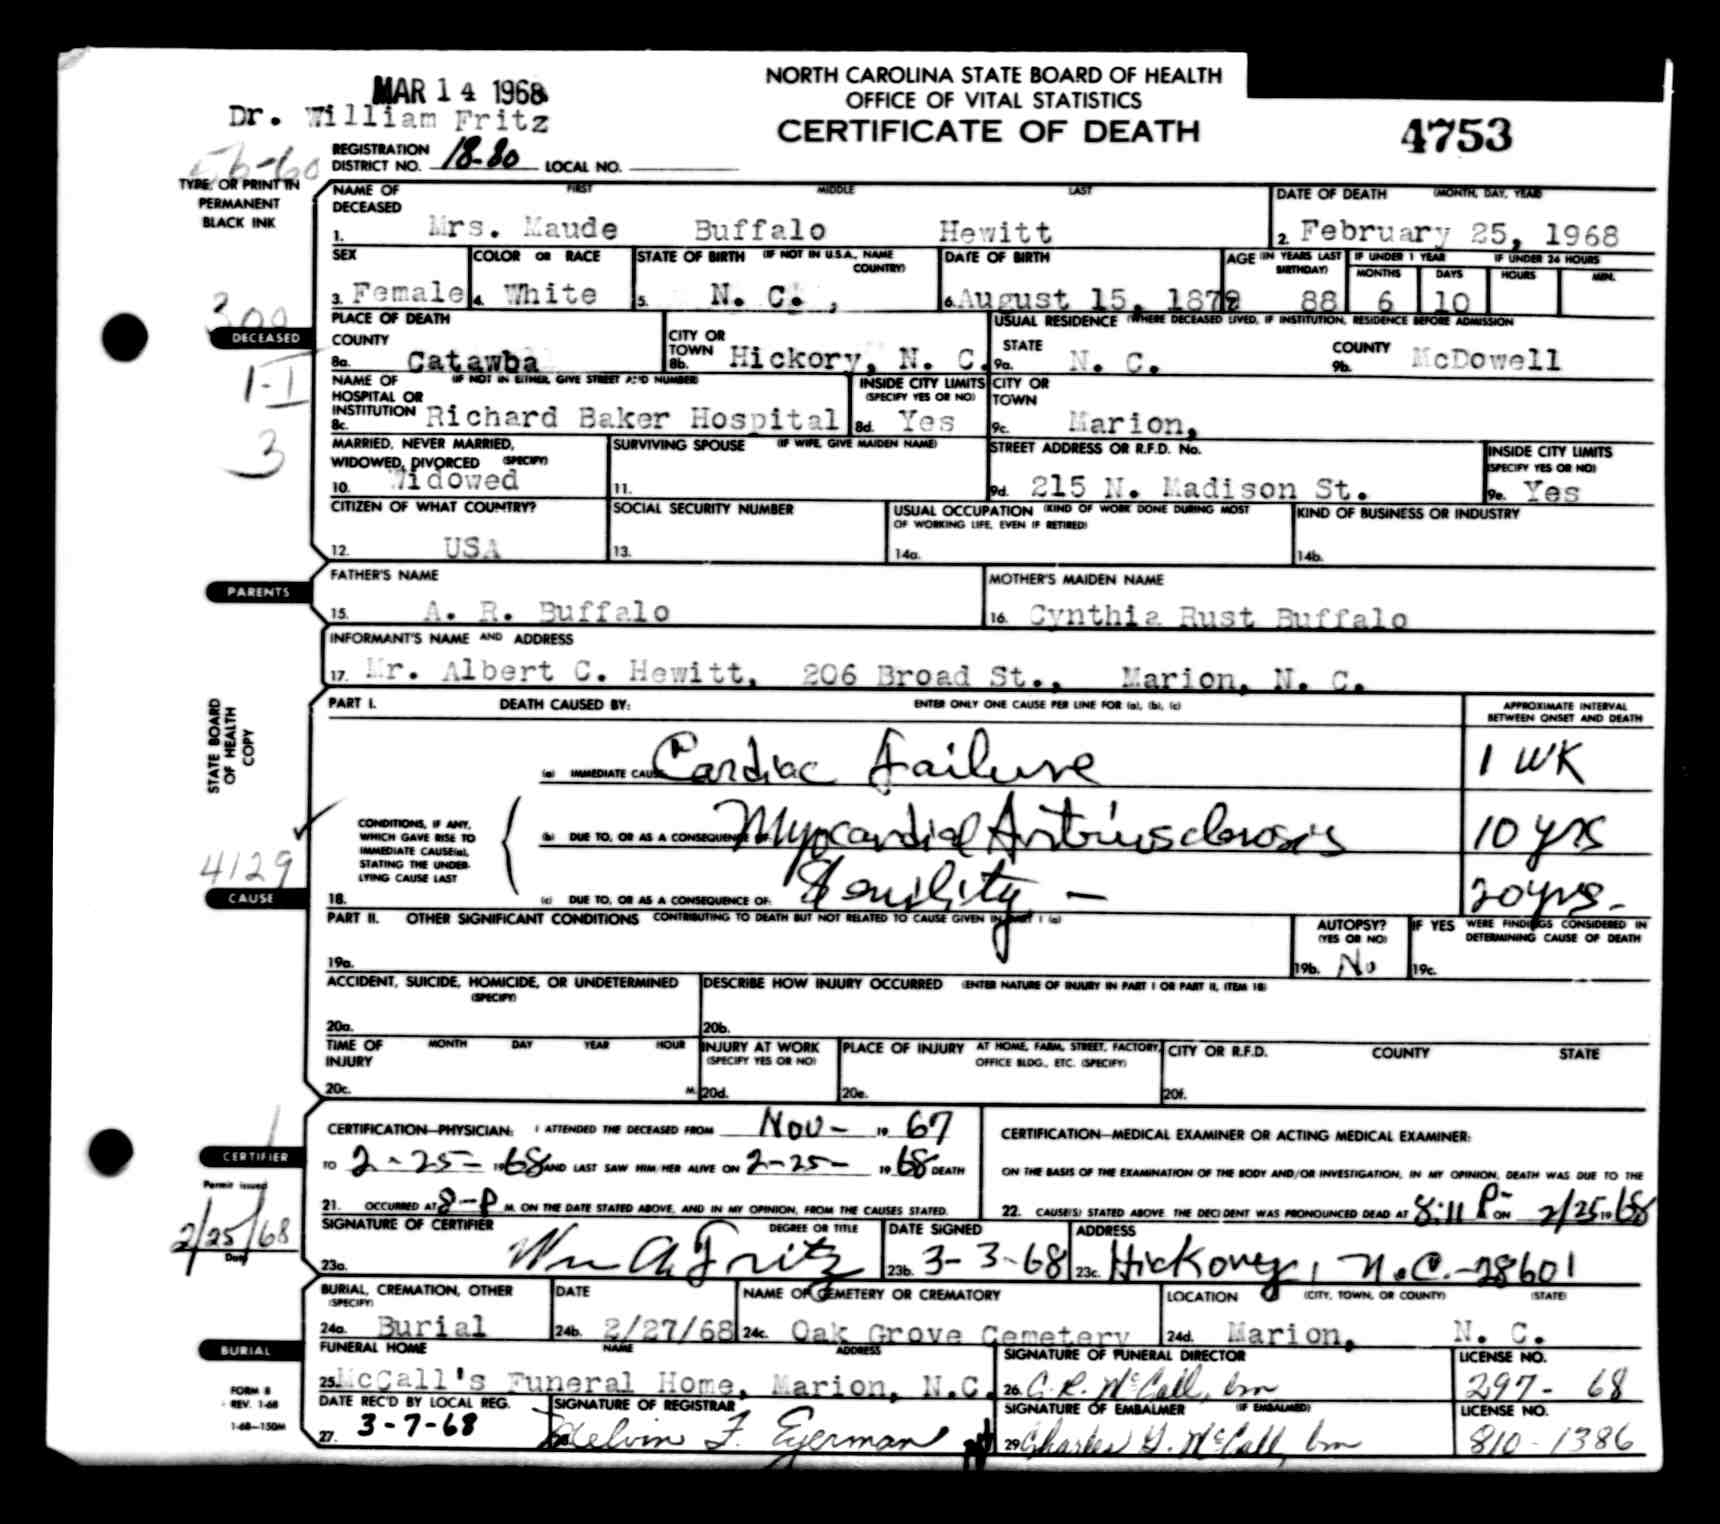 MAR 14 1968
NORTH CAROLINA STATE BOARD OF HEALTH
OFFICE OF VITAL STATISTICS
CERTIFICATE OF DEATH
4753
Dr. William Fritz
56-60
REGISTRATION DISTRICT NO. 18-80 LOCAL NO.
TYPE, OR PRINT IN PERMANENT BLACK INK
NAME OF DECEASED FIRST MIDDLE LAST
1. Mrs. Maude Buffalo Hewitt
DATE OF DEATH (MONTH, DAY, YEAR)
2. February 25, 1968
SEX
3. Female
COLOR OR RACE
4. White
STATE OF BIRTH (IF NOT IN U.S.A., NAME COUNTRY)
5. N. C.,
DATE OF BIRTH
6. August 15, 1879
AGE (IN YEARS LAST BIRTHDAY) 88
IF UNDER 1 YEAR MONTHS 6 DAYS 10
IF UNDER 24 HOURS HOURS MIN.
300
DECEASED
1-I
3
PLACE OF DEATH
COUNTY
8a. Catawba
CITY OR TOWN
8b. Hickory, N. C.
USUAL RESIDENCE (WHERE DECEASED LIVED, IF INSTITUTION, RESIDENCE BEFORE ADMISSION
STATE
9a. N. C.
COUNTY
9b. McDowell
NAME OF HOSPITAL OR INSTITUTION (IF NOT IN EITHER, GIVE STREET AND NUMBER)
8c. Richard Baker Hospital
INSIDE CITY LIMITS (SPECIFY YES OR NO)
8d. Yes
CITY OR TOWN
9c. Marion,
MARRIED, NEVER MARRIED, WIDOWED, DIVORCED (SPECIFY)
10. Widowed
SURVIVING SPOUSE (IF WIFE, GIVE MAIDEN NAME)
11.
STREET ADDRESS OR R.F.D. No.
9d. 215 N. Madison St.
INSIDE CITY LIMITS (SPECIFY YES OR NO)
9e. Yes
CITIZEN OF WHAT COUNTRY?
12. USA
SOCIAL SECURITY NUMBER
13.
USUAL OCCUPATION (KIND OF WORK DONE DURING MOST OF WORKING LIFE, EVEN IF RETIRED)
14a.
KIND OF BUSINESS OR INDUSTRY
14b.
PARENTS
FATHER'S NAME
15. A. R. Buffalo
MOTHER'S MAIDEN NAME
16. Cynthia Rust Buffalo
INFORMANT'S NAME AND ADDRESS
17. Mr. Albert C. Hewitt, 206 Broad St., Marion, N. C.
STATE BOARD OF HEALTH COPY
PART I. DEATH CAUSED BY: ENTER ONLY ONE CAUSE PER LINE FOR (a), (b), (c)
APPROXIMATE INTERVAL BETWEEN ONSET AND DEATH
(a) IMMEDIATE CAUSE Cardiac Failure 1 WK
CONDITIONS, IF ANY, WHICH GAVE RISE TO IMMEDIATE CAUSE(a), STATING THE UNDERLYING CAUSE LAST
(b) DUE TO, OR AS A CONSEQUENCE OF: Myocardial Artriosclerosis 10 yrs
4129
CAUSE
18. (c) DUE TO, OR AS A CONSEQUENCE OF: Senility — 20 yrs.
PART II. OTHER SIGNIFICANT CONDITIONS CONTRIBUTING TO DEATH BUT NOT RELATED TO CAUSE GIVEN IN PART I (a)
19a.
AUTOPSY? (YES OR NO)
19b. No
IF YES WERE FINDINGS CONSIDERED IN DETERMINING CAUSE OF DEATH
19c.
ACCIDENT, SUICIDE, HOMICIDE, OR UNDETERMINED (SPECIFY)
20a.
DESCRIBE HOW INJURY OCCURRED (ENTER NATURE OF INJURY IN PART I OR PART II, ITEM 18)
20b.
TIME OF INJURY MONTH DAY YEAR HOUR
20c. M.
INJURY AT WORK (SPECIFY YES OR NO)
20d.
PLACE OF INJURY AT HOME, FARM, STREET, FACTORY, OFFICE BLDG., ETC. (SPECIFY)
20e.
CITY OR R.F.D. COUNTY STATE
20f.
CERTIFIER
CERTIFICATION—PHYSICIAN: I ATTENDED THE DECEASED FROM Nov- 19 67
TO 2-25- 1968 AND LAST SAW HIM/HER ALIVE ON 2-25- 19 68 DEATH
21. OCCURRED AT 8-P M. ON THE DATE STATED ABOVE, AND IN MY OPINION, FROM THE CAUSES STATED.
CERTIFICATION—MEDICAL EXAMINER OR ACTING MEDICAL EXAMINER:
ON THE BASIS OF THE EXAMINATION OF THE BODY AND/OR INVESTIGATION, IN MY OPINION, DEATH WAS DUE TO THE
22. CAUSE(S) STATED ABOVE. THE DECIDENT WAS PRONOUNCED DEAD AT 8:11 P ON 2/25 1968
Permit issued
2/25/68
Date
SIGNATURE OF CERTIFIER DEGREE OR TITLE
23a. Wm A. Fritz
DATE SIGNED
23b. 3-3-68
ADDRESS
23c. Hickory, N.C.-28601
BURIAL
BURIAL, CREMATION, OTHER (SPECIFY)
24a. Burial
DATE
24b. 2/27/68
NAME OF CEMETERY OR CREMATORY
24c. Oak Grove Cemetery
LOCATION (CITY, TOWN, OR COUNTY) (STATE)
24d. Marion, N. C.
FUNERAL HOME NAME ADDRESS
25. McCall's Funeral Home, Marion, N.C.
SIGNATURE OF FUNERAL DIRECTOR
26. C. R. McCall, bm
LICENSE NO.
297- 68
FORM 8
REV. 1-68
1-68—150M
DATE REC'D BY LOCAL REG.
27. 3-7-68
SIGNATURE OF REGISTRAR
28. Melvin F. Eyerman
SIGNATURE OF EMBALMER (IF EMBALMED)
29. Charles G. McCall, bm
LICENSE NO.
810-1386